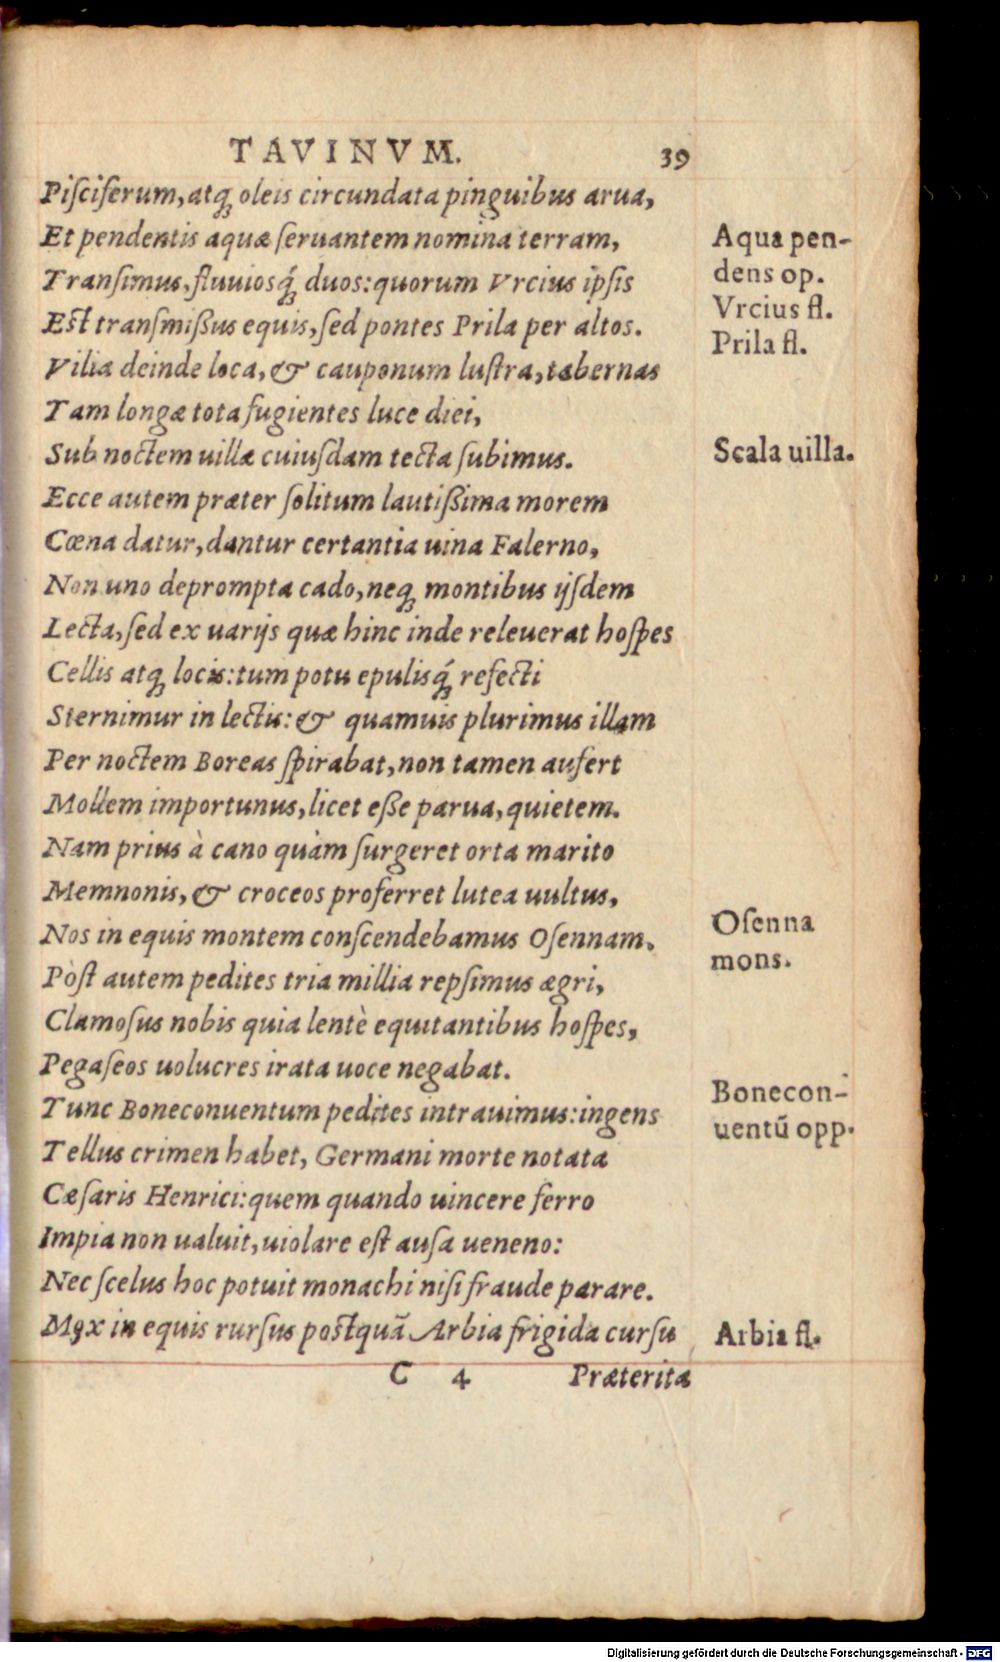 TAVINVM. 39
Piſciferum, atq́ꝫ oleis circundata pinguibus arua,
Et pendentis aquæ ſeruantem nomina terram,
Aqua pen-
dens op.
Tranſimus, fluuiosq́ꝫ duos: quorum Vrcius ipſis
Vrcius fl.
Eſt tranſmiſſus equis, ſed pontes Prila per altos.
Prila fl.
Vilia deinde loca, & cauponum luſtra, tabernas
Tam longæ tota fugientes luce diei,
Sub noctem uillæ cuiuſdam tecta ſubimus.
Scala uilla.
Ecce autem præter ſolitum lautiſſima morem
Cœna datur, dantur certantia uina Falerno,
Non uno deprompta cado, neqꝫ montibus ijſdem
Lecta, ſed ex uarijs quæ hinc inde releuerat hoſpes
Cellis atqꝫ locis: tum potu epulisq́ꝫ refecti
Sternimur in lectis: & quamuis plurimus illam
Per noctem Boreas ſpirabat, non tamen aufert
Mollem importunus, licet eſſe parua, quietem.
Nam prius à cano quàm ſurgeret orta marito
Memnonis, & croceos proferret lutea uultus,
Nos in equis montem conſcendebamus Oſennam.
Oſenna
mons.
Pòſt autem pedites tria millia repſimus ægri,
Clamoſus nobis quia lentè equitantibus hoſpes,
Pegaſeos uolucres irata uoce negabat.
Tunc Boneconuentum pedites intrauimus: ingens
Bonecon-
uentũ opp.
Tellus crimen habet, Germani morte notata
Cæſaris Henrici: quem quando uincere ferro
Impia non ualuit, uiolare eſt auſa ueneno:
Nec ſcelus hoc potuit monachi niſi fraude parare.
Mox in equis rurſus poſtquã Arbia frigida curſu
Arbia fl.
C 4 Præterita
Digitalisierung gefördert durch die Deutsche Forschungsgemeinschaft - DFG